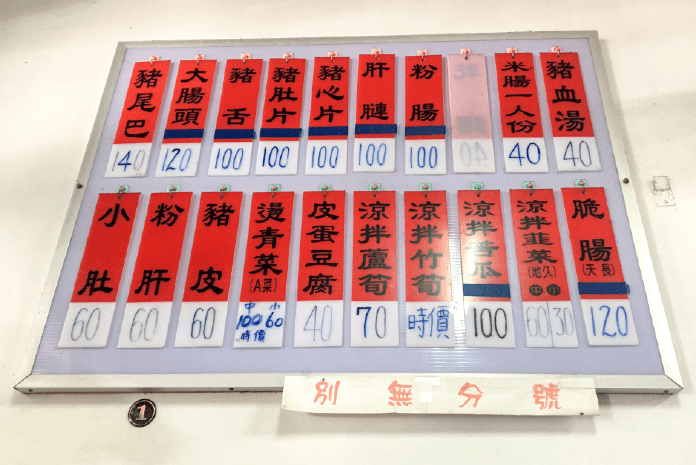 豬尾巴 140
大腸頭 120
豬舌 100
豬肚片 100
豬心片 100
肝腱 100
粉腸 100
米腸一人份 40
豬血湯 40
小肚 60
粉肝 60
豬皮 60
燙青菜(A菜) 中100 小60 時價
皮蛋豆腐 40
涼拌蘆筍 70
涼拌竹筍 時價
涼拌苦瓜 100
涼拌韭菜(地久) 中60 小30
脆腸(天長) 120
別無分號
1